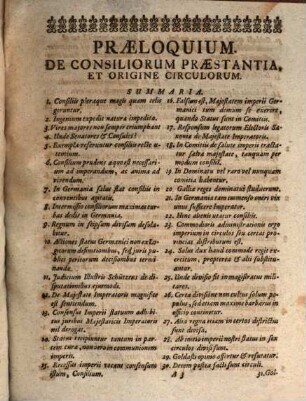 PRÆLOQUIUM.
DE CONSILIORUM PRÆSTANTIA,
ET ORIGINE CIRCULORUM.
SUMMARIA.
1. Consilio pleraque magis quam telis
geruntur.
2. Ingenium expedit natura impedita.
3. Vires majores non semper triumphant
4. Unde Senatores & Consules?
5. Exempla referuntur consilii reste a-
6. Consilium prudens aquè est necessari-
um ad imperandum, ac anima ad
vivendum.
7. In Germania solus stat consilii in
conventibus agitatis.
8. Intermissio consiliorum maximas tur-
bas dedit in Germania.
9. Regnum in seipsum divisum desola-
tur.
10. Actiones status Germanici non ex lo-
gicorum definitionibus, sed juris pu-
blici peritorum decisionibus termi-
nanda.
11. Judicium Illustris Schützens de dis-
putationibus ejusmodi.
12. De Majestate Imperii magnus
est sententia.
13. Consensus Imperii statuum adhibi-
tus juribus Majestaticis Imperatoris
nil derogat.
14. Status recipiuntur tantum in par-
tem cura, non verò in communionem
imperii.
15. Recessus imperii vocant consensum
ipsum, Consilium.
16. Falsum est, Majestatem imperii Ger-
manici tum demum se exerere,
quando Status sunt in Comitiis.
17. Responsum legatorum Electoris Sa-
xonia de Majestate Imperatoris.
18. In Comitiis de salute imperii tracta-
tur salva majestate, tanquam per
modum consilii.
19. In Dominatu vel rarò vel nunquam
comitia habentur.
20. Gallia reges dominatûs studiosi.
21. In Germania tam immensa onera vix
unus sufficeret Imperator.
22. Hinc aliunde vocatur consilia.
23. Commodioris administrationis ergo
imperium in circulos seu certas pro-
vincias distributum est.
24. Solus dux haud commodè regit e-
xercitum, propterea & alii substitu-
antur.
25. Unde divisio sit in magistratus mili-
tares.
26. Certa divisione non cultos solùm po-
pulos, sed etiam maximè barbaros in
officio contineri.
27. Alia regna etiam in certos districtus
sunt divisa.
28. Ab initio imperii nostri status in san-
circulos divisi.
29. Goldasti opinio affertur & refutatur.
30. Decem postea facti sunt circuli.
A 3
31. Gol-